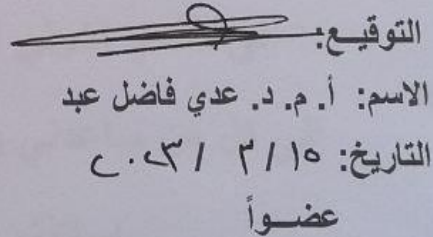 التوقيع:
الاسم: أ. م. د. عدي فاضل عبد
التاريخ: ١٥ / ٣ / ٢٠٢٣
عضواً